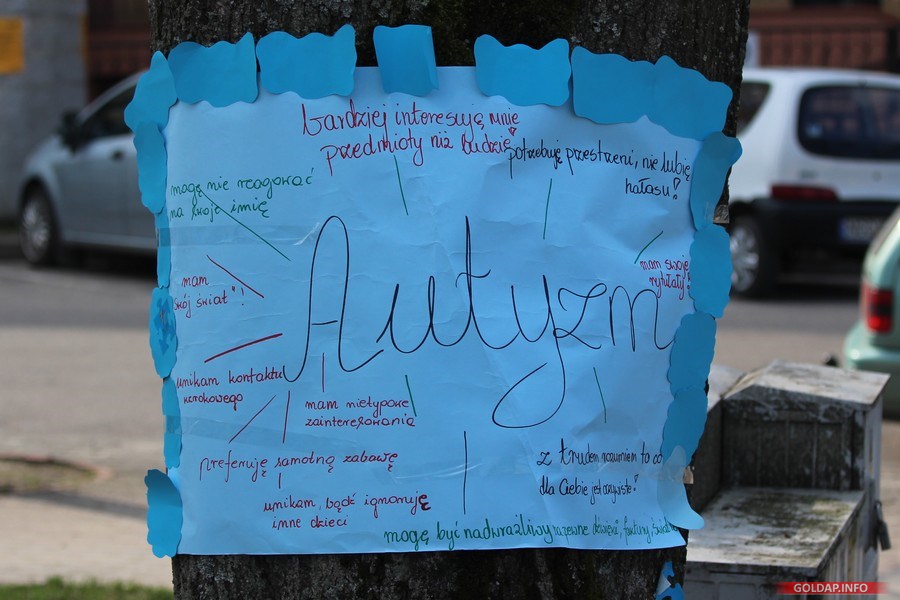 bardziej interesują mnie
przedmioty niż ludzie!
potrzebuję przestrzeni, nie lubię
hałasu!
mogę nie reagować
na swoje imię
mam swoje
rytuały!
mam
swój świat"!
Autyzm
unikam kontaktu
wzrokowego
mam nietypowe
zainteresowania
preferuję samotną zabawę
z trudem rozumiem to co
dla Ciebie jest oczywiste!
unikam, bądź ignoruję
inne dzieci
mogę być nadwrażliwy na pewne dźwięki, faktury,
GOLDAP.INFO